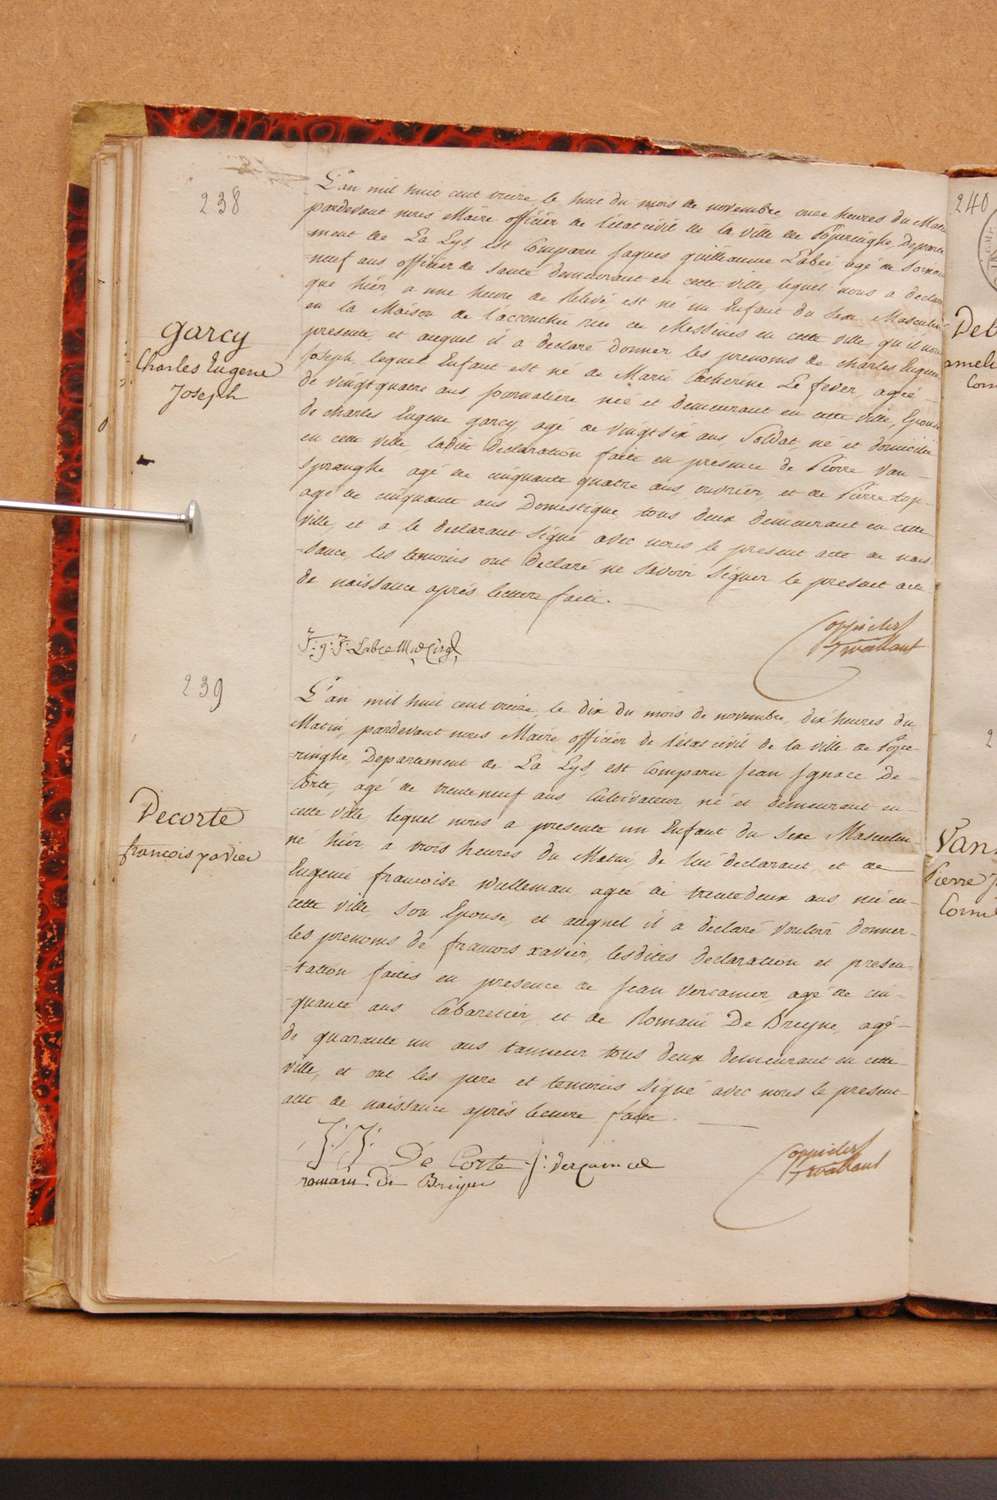 238
L'an mil huit cent treize, le huit du mois de novembre, onze heures du Matin
pardevant nous Maire officier de l'état civil de la ville de Poperinghe, Departe
ment de La Lys, est Comparu Jaques guillaume Labié agé de soixante
neuf ans officier de Santé demeurant en cette ville, lequel nous a declaré
que hiér a une heure de relevé, est né un Enfant du Sexe Masculin
en la Maison de l'accouchée rue de Messines en cette ville, qu'il nous
presente, et auquel il a declaré donner les prenoms de charles Eugene
Joseph, lequel Enfant est né de Marie Catherine Le fever, agée
de vingt quatre ans journaliere née et demeurant en cette ville, Epouse
de charles Eugene garcy agé de vingt six ans Soldat né et domicilié
en cette ville ladite Declaration faite en presence de Pierre Van
Spranghe agé de cinquante quatre ans, ouvrier, et de Pierre
agé de cinquante ans Domestique, tous deux demeurant en cette
ville, et a le declarant signé avec nous le present acte de nais
sance, les temoins ont declaré ne savoir signer le present acte
de naissance aprés lecture faite.
garcy
Charles Eugene
Joseph
J. g. J. Labie
239
L'an mil huit cent treize, le dix du mois de novembre, dix heures du
Matin, pardevant nous Maire officier de l'état civil de la ville de Pope
ringhe, Departement de La Lys, est Comparu Jean Ignace De-
Corte, agé de trente neuf ans Cultivateur né et demeurant en
cette ville, lequel nous a presente un Enfant du Sexe Masculin
né hiér a trois heures du Matin, de lui declarant et de
Eugenie francoise Walleman agée de trente deux ans née en
cette ville, son Epouse, et auquel il a declaré vouloir donner
les prenoms de francois xavier, lesdites declaration et presen
tation faites en presence de Jean Vercamer, agé de cin-
quante ans Cabaretier et de Romain De Breyne, agé
de quarante un ans tanneur tous deux demeurant en cette
ville, et ont les pere et temoins signé avec nous le present
acte de naissance aprés lecture faite.
Decorte
francois xavier
J: J: De Corte J: Vercamer
romain De Breyne
240
Pierre